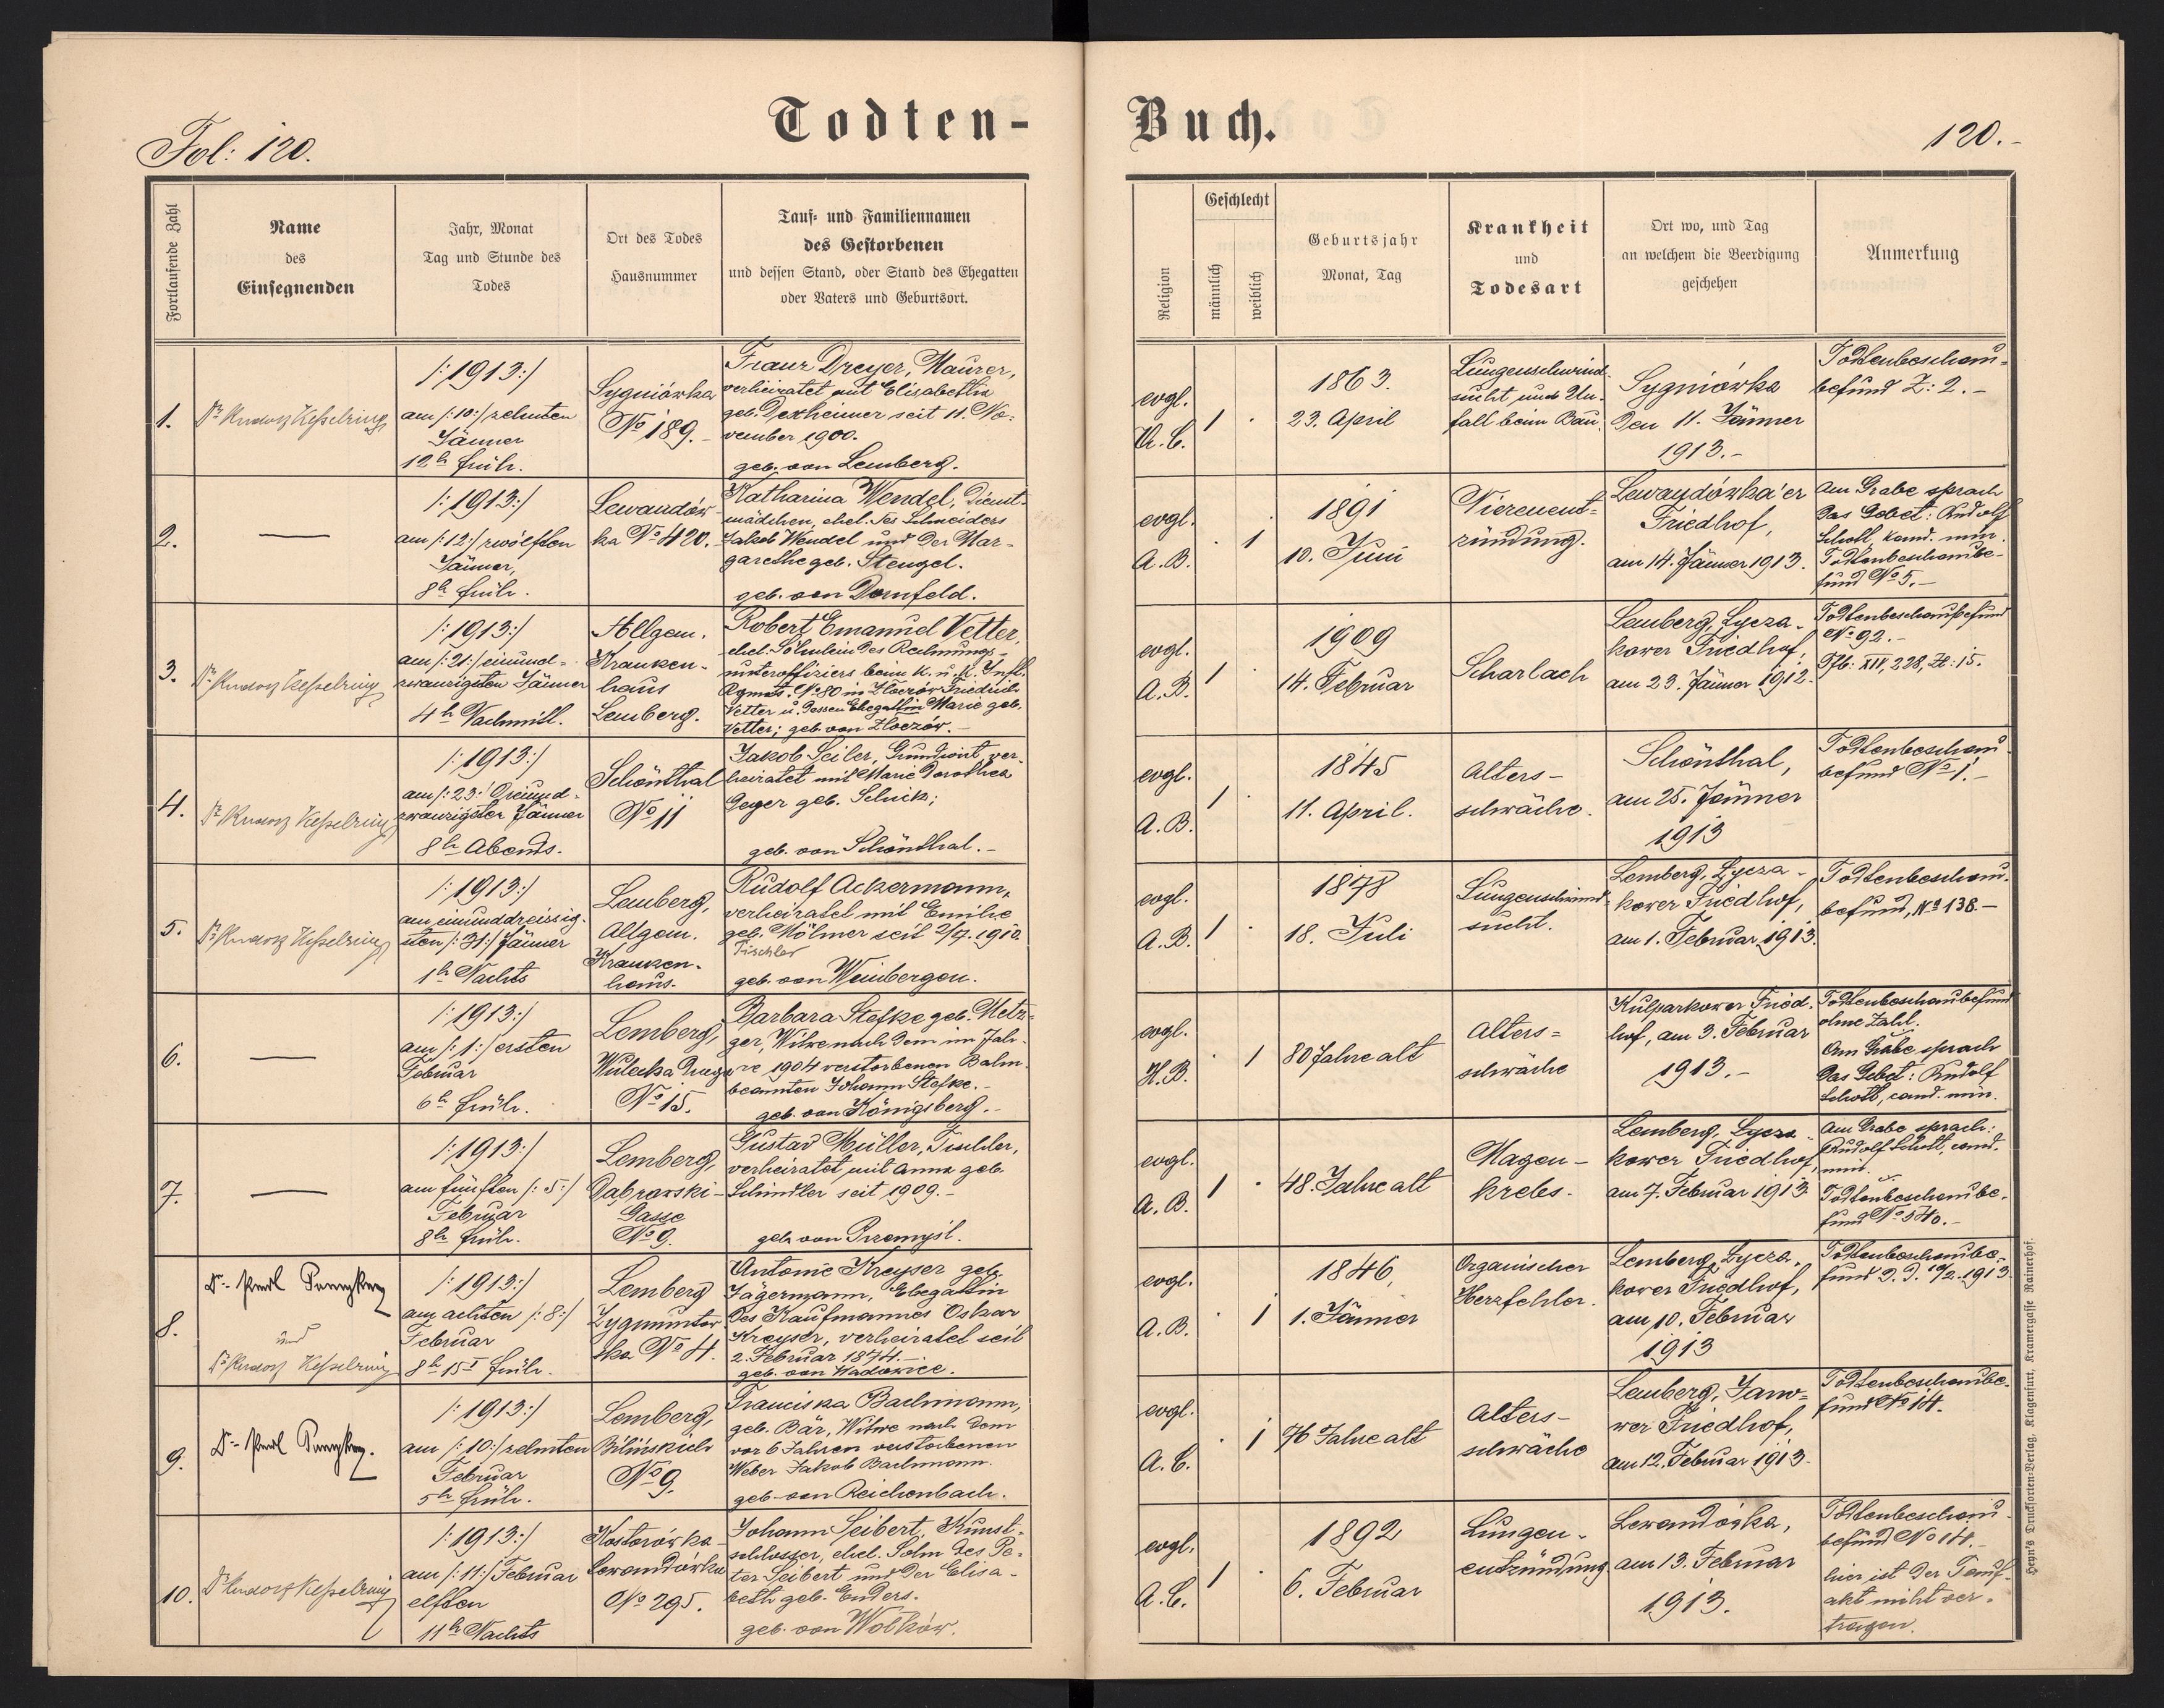 Fol: 120.
Todten-
Buch.
120.-
Fortlaufende Zahl
Name
des
Einsegnenden
Jahr, Monat
Tag und Stunde des
Todes
Ort des Todes
Hausnummer
Tauf- und Familiennamen
des Gestorbenen
und dessen Stand, oder Stand des Ehegatten
oder Vaters und Geburtsort.
Religion
Geschlecht
männlich
weiblich
Geburtsjahr
Monat, Tag
Krankheit
und
Todesart
Ort wo, und Tag
an welchem die Beerdigung
geschehen
Anmerkung
1.
Dr Rudolf Kesselring
/:1913:/
am /:10:/ zehnten
Jänner
12h früh.
Sygniówka
No 189.-
Franz Dreyer, Maurer,
verheiratet mit Elisabetha
geb. Dexheimer seit 11. No-
vember 1900.
geb. von Lemberg.
evgl.
H.C.
1 .
1863.
23. April
Lungenschwind-
sucht und Un-
fall beim Bau.
Sygniówka
Den 11. Jänner
1913.-
Todtenbeschau-
befund Z: 2.-
2.
—
/:1913:/
am /:12:/ zwölften
Jänner,
8h früh.
Lewandów-
ka No 420.
Katharina Wendel, Dienst-
mädchen, ehel. des Schneiders
Jakob Wendel und der Mar-
garethe geb. Stengel.
geb. von Dornfeld.
evgl.
A.B.
. 1
1891
10. Juni
Nierenent-
zündung.
Lewandówka'er
Friedhof,
am 14. Jänner 1913.
Am Grabe sprach
das Gebet: Rudolf
Scholl, kand. min.
Todtenbeschaube-
fund No 5.-
3.
Dr Rudolf Kesselring
/:1913:/
am /:21:/ einund-
zwanzigsten Jänner
4h Nachmitt.
Allgem.
Kranken-
haus
Lemberg.
Robert Emanuel Vetter,
ehel. Söhnlein des Rechnungs-
unteroffiziers beim k. u. k. Inft.
Rgmt. No 80 in Zloczów Friedrich
Vetter u. dessen Ehegattin Marie geb.
Vetter; geb. von Zloczów.-
evgl.
A.B.
1 .
1909
14. Februar
Scharlach
Lemberg, Lycza-
kower Friedhof,
am 23. Jänner 1912.
Todtenbeschaubefund
No 92.-
Tfb: XIV, 228, Zl: 15.
4.
Dr Rudolf Kesselring
/:1913:/
am /:23:/ dreiund-
zwanzigster Jänner
8h Abends.
Schönthal
No 11
Jakob Seiler, Grundwirt, ver-
heiratet mit Marie Dorothea
Geger geb. Schick;
geb. von Schönthal.-
evgl.
A.B.
1 .
1845
11. April.
Alters-
schwäche.
Schönthal,
am 25. Jänner
1913
Todtenbeschau-
befund No 1.-
5.
Dr Rudolf Kesselring
/:1913:/
am einunddreissig-
sten /:31:/ Jänner
1h Nachts
Lemberg,
Allgem.
Kranken-
haus.
Rudolf Ackermann,
verheiratet mit Emilie
geb. Mölmer seit 2/7. 1910.
Tischler
geb. von Weinbergen.
evgl.
A.B.
1 .
1878
18. Juli
Lungenschwind-
sucht.
Lemberg, Lycza-
kower Friedhof,
am 1. Februar 1913.
Todtenbeschau-
befund, No 138.-
6.
—
/:1913:/
am /:1:/ ersten
Februar
6h früh.
Lemberg,
Wulecka Droga
No 15.
Barbara Stefke geb. Metz-
ger, Witwe nach dem im Jah-
re 1904 verstorbenen Bahn-
beamten Johann Stefke.-
geb. von Königsberg.-
evgl.
H.B.
. 1
80 Jahre alt
Alters-
schwäche
Kulparkower Fried-
hof, am 3. Februar
1913.-
Todtenbeschaubefund
ohne Zahl.
Am Grabe sprach
das Gebet: Rudolf
Scholl, cand. min.
7.
—
/:1913:/
am fünften /:5:/
Februar
8h früh.
Lemberg,
Dabrowski-
Gasse
No 9.
Gustav Müller, Tischler,
verheiratet mit Anna geb.
Schindler seit 1909.-
geb. von Przemysl.
evgl.
A.B.
1 .
48. Jahre alt
Magen-
krebs.
Lemberg, Lycza-
kower Friedhof,
am 7. Februar 1913.
Am Grabe sprach:
Rudolf Scholl, cand.
min.
Todtenbeschaube-
fund No 540.-
8.
und
Dr Rudolf Kesselring
/:1913:/
am achten /:8:/
Februar
8h 15I früh.
Lemberg
Zygmuntow-
ska No 4.
Antonie Kreyser geb.
Jägermann, Ehegattin
des Kaufmannes Oskar
Kreyser, verheiratet seit
2. Februar 1874.-
geb. von Wadowice.
evgl.
A.B.
. 1
1846,
1. Jänner
Organischer
Herzfehler.
Lemberg, Lycza-
kower Friedhof,
am 10. Februar
1913
Todtenbeschaube-
fund D.D. 10/2. 1913
9.
/:1913:/
am /:10:/ zehnten
Februar
5h früh.
Lemberg,
Bilińskich
No 9.
Franciska Bachmann,
geb. Bär, Witwe nach dem
vor 6 Jahren verstorbenen
Weber Jakob Bachmann.
geb. von Reichenbach.
evgl.
A.C.
. 1
76 Jahre alt
Alters-
schwäche
Lemberg, Janow-
wer Friedhof,
am 12. Februar 1913.
Todtenbeschaube-
fund No 14.
10.
Dr Rudolf Kesselring
/:1913:/
am /:11:/ Februar
elften
11h Nachts
Kostorówka-
Lewandówka
No 295.
Johann Seibert, Kunst-
schlosser, ehel. Sohn des Pe-
ter Seibert und der Elisa-
beth geb. Enders.
geb. von Wolków.
evgl.
A.C.
1 .
1892
6. Februar
Lungen-
entzündung
Lewandówka,
am 13. Februar
1913.
Todtenbeschau-
befund No 14.-
hier ist der Tauf-
akt nicht ver-
tragen.
Heyn's Drucksorten-Verlag, Klagenfurt, Kramergasse Rainerhof.